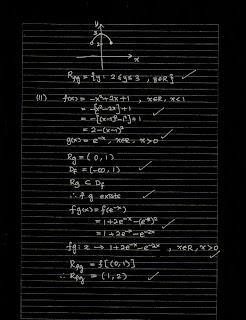 y
3
2
x
R_fg = {y : 2 ≤ y ≤ 3 , y∈R} ✓
(ii) f(x) = -x²+2x+1 , x∈R, x<1
= -[x²-2x]+1
= -[(x-1)²-1²]+1
= 2-(x-1)² ✓
g(x) = e^-x, x∈R, x>0 ✓
R_g = (0,1)
D_f = (-∞,1) ✓
R_g ⊂ D_f
∴ f g exists ✓
fg(x) = f(e^-x)
= 1+2e^-x-(e^-x)² ✓
= 1+2e^-x-e^-2x
fg : x → 1+2e^-x-e^-2x , x∈R, x>0 ✓
R_fg = f[(0,1)]
∴ R_fg = (1,2) ✓